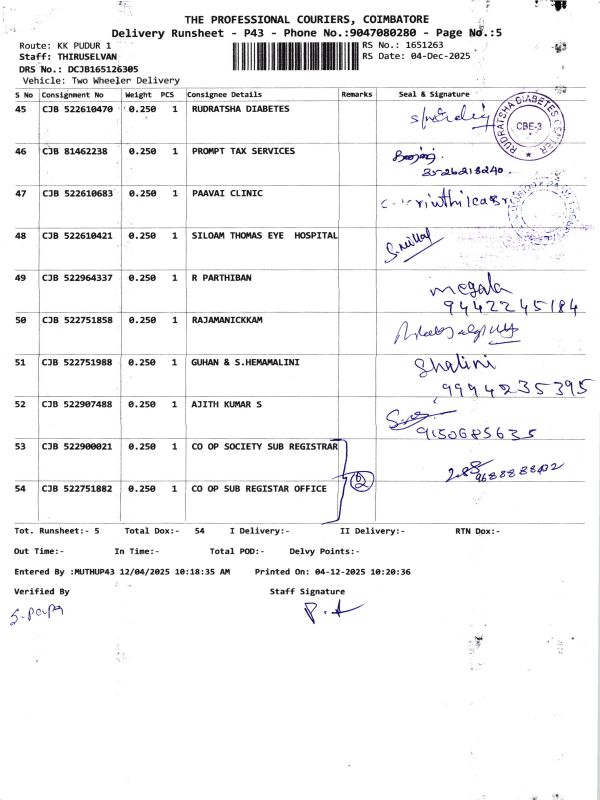 THE PROFESSIONAL COURIERS, COIMBATORE
Delivery Runsheet - P43 - Phone No.:9047080280 - Page No.:5
Route: KK PUDUR 1 RS No.: 1651263
Staff: THIRUSELVAN RS Date: 04-Dec-2025
DRS No.: DCJB165126305
Vehicle: Two Wheeler Delivery
S No Consignment No Weight PCS Consignee Details Remarks Seal & Signature
45 CJB 522610470 0.250 1 RUDRATSHA DIABETES
RUDRATSHA DIABETES CENTER
CBE-3
46 CJB 81462238 0.250 1 PROMPT TAX SERVICES
47 CJB 522610683 0.250 1 PAAVAI CLINIC
48 CJB 522610421 0.250 1 SILOAM THOMAS EYE HOSPITAL
49 CJB 522964337 0.250 1 R PARTHIBAN
megala
9442245184
50 CJB 522751858 0.250 1 RAJAMANICKKAM
51 CJB 522751988 0.250 1 GUHAN & S.HEMAMALINI
Shalini
9994235395
52 CJB 522907488 0.250 1 AJITH KUMAR S
9150685635
53 CJB 522900021 0.250 1 CO OP SOCIETY SUB REGISTRAR
2
54 CJB 522751882 0.250 1 CO OP SUB REGISTAR OFFICE
Tot. Runsheet:- 5 Total Dox:- 54 I Delivery:- II Delivery:- RTN Dox:-
Out Time:- In Time:- Total POD:- Delvy Points:-
Entered By :MUTHUP43 12/04/2025 10:18:35 AM Printed On: 04-12-2025 10:20:36
Verified By Staff Signature